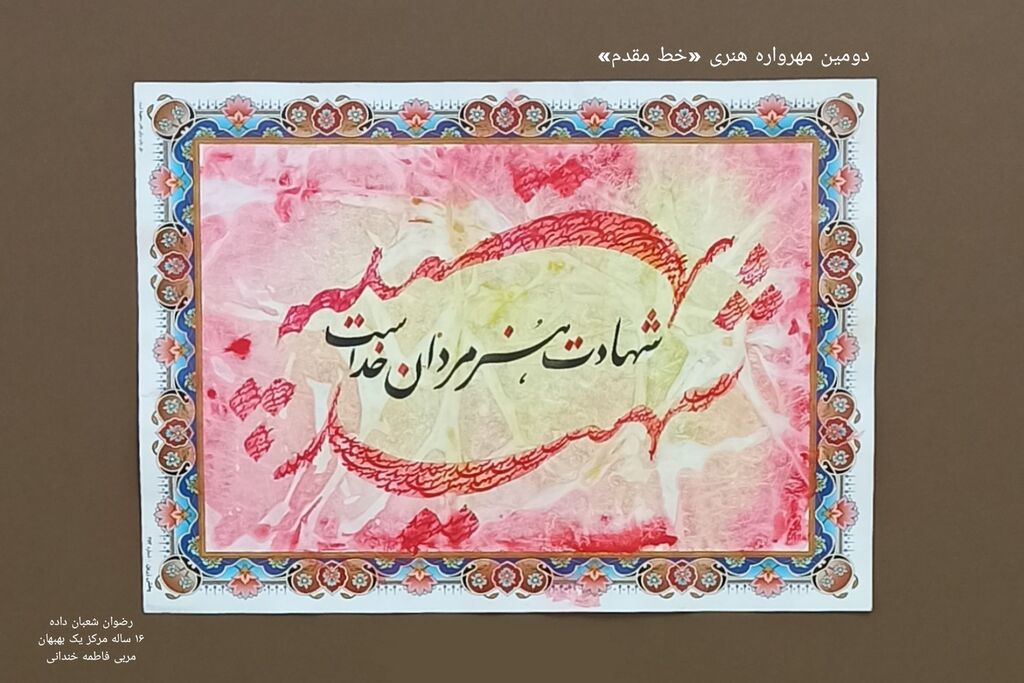 دومین مهرواره هنری «خط مقدم»
شهادت هنر مردان خداست
رضوان شعبان داده
۱۶ ساله مرکز یک بهبهان
مربی فاطمه خندانی